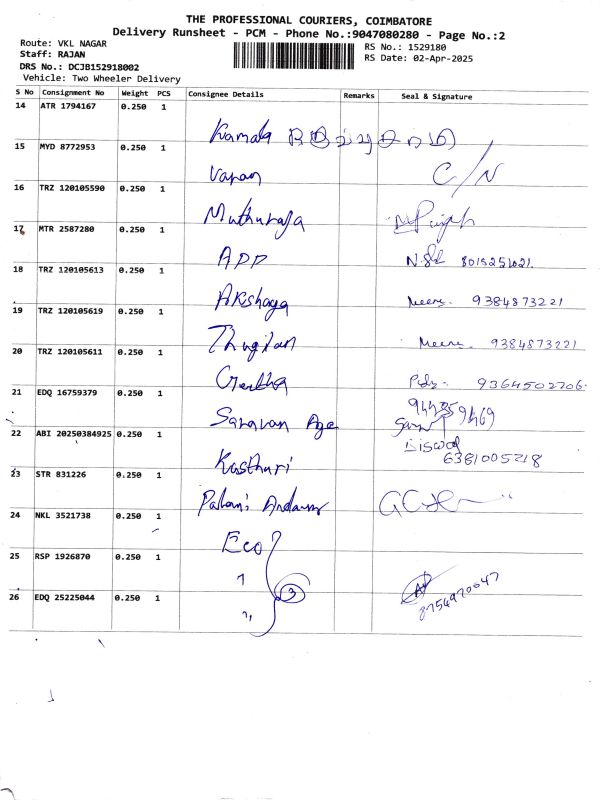 THE PROFESSIONAL COURIERS, COIMBATORE
Delivery Runsheet - PCM - Phone No.:9047080280 - Page No.:2
Route: VKL NAGAR
RS No.: 1529180
Staff: RAJAN
RS Date: 02-Apr-2025
DRS No.: DCJB152918002
Vehicle: Two Wheeler Delivery
S No Consignment No Weight PCS Consignee Details Remarks Seal & Signature
14 ATR 1794167 0.250 1 Kamala
15 MYD 8772953 0.250 1 Varan C/N
16 TRZ 120105590 0.250 1 Muthuraja
17 MTR 2587280 0.250 1 APP 8015251021
18 TRZ 120105613 0.250 1 Akshaya Meera. 9384873221
19 TRZ 120105619 0.250 1 Thugilan Meera. 9384873221
20 TRZ 120105611 0.250 1 Geetha 9364502706
21 EDQ 16759379 0.250 1 Saravan Age
22 ABI 20250384925 0.250 1 Kasthuri Biswal
6381005218
23 STR 831226 0.250 1 Palani Andavar
24 NKL 3521738 0.250 1 Eco
25 RSP 1926870 0.250 1 "
26 EDQ 25225044 0.250 1 " 3 8754970047